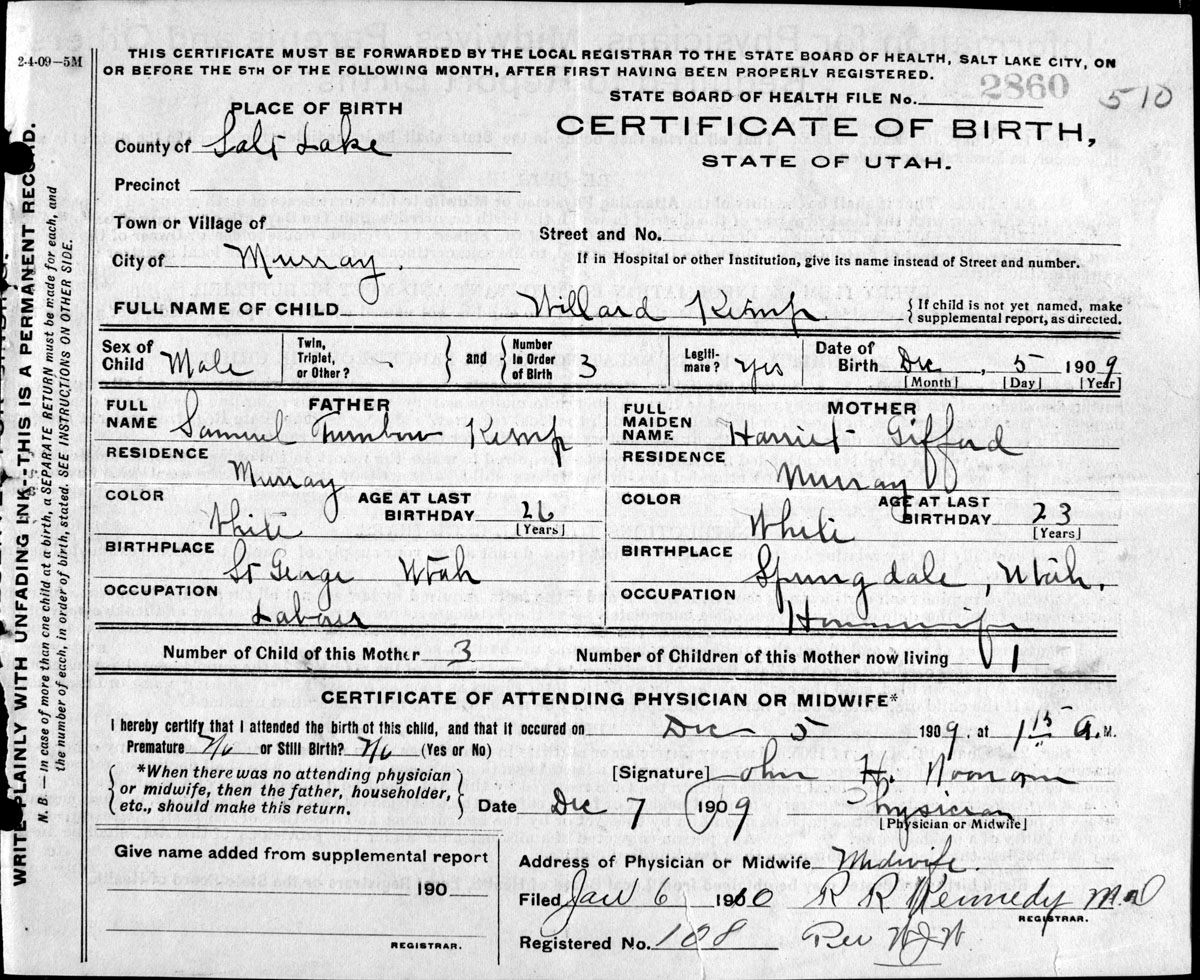 2-4-09—5M
THIS CERTIFICATE MUST BE FORWARDED BY THE LOCAL REGISTRAR TO THE STATE BOARD OF HEALTH, SALT LAKE CITY, ON
OR BEFORE THE 5TH OF THE FOLLOWING MONTH, AFTER FIRST HAVING BEEN PROPERLY REGISTERED.
2860
510
STATE BOARD OF HEALTH FILE No.
PLACE OF BIRTH
CERTIFICATE OF BIRTH,
STATE OF UTAH.
County of Salt Lake
Precinct
Town or Village of
Street and No.
City of Murray.
If in Hospital or other Institution, give its name instead of Street and number.
FULL NAME OF CHILD Willard Kemp { If child is not yet named, make supplemental report, as directed.
Sex of Child Male Twin, Triplet, or Other? - } and { Number in Order of Birth 3 Legiti-mate? Yes Date of Birth Dec, 5 1909
[Month] [Day] [Year]
FATHER
FULL NAME Samuel Turnbow Kemp
RESIDENCE
Murray
COLOR
White
AGE AT LAST BIRTHDAY 26
[Years]
BIRTHPLACE
St George Utah
OCCUPATION
Labour
MOTHER
FULL MAIDEN NAME Harriet Gifford
RESIDENCE
Murray
COLOR
White
AGE AT LAST BIRTHDAY 23
[Years]
BIRTHPLACE
Springdale, Utah.
OCCUPATION
Housewife
Number of Child of this Mother 3 Number of Children of this Mother now living 1
CERTIFICATE OF ATTENDING PHYSICIAN OR MIDWIFE*
I hereby certify that I attended the birth of this child, and that it occured on Dec 5 1909, at 1 15 A.M.
Premature No or Still Birth? No (Yes or No)
{ *When there was no attending physician
or midwife, then the father, householder,
etc., should make this return. }
[Signature] John H.
Date Dec 7 1909 Physician
[Physician or Midwife]
Give name added from supplemental report
190
REGISTRAR.
Address of Physician or Midwife Midwife.
Filed Jan 6 1910 R R Kennedy M.D
REGISTRAR.
Registered No. 108 Per WJW
WRITE PLAINLY WITH UNFADING INK--THIS IS A PERMANENT RECORD.
N. B. — in case of more than one child at a birth, a SEPARATE RETURN must be made for each, and
the number of each, in order of birth, stated. SEE INSTRUCTIONS ON OTHER SIDE.